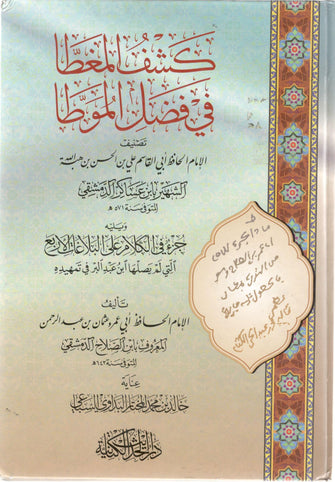 كشف المغطا
في فضل الموطا
تصنيف
الإمام الحافظ أبي القاسم علي بن الحسن بن هبة الله
الشهير بابن عساكر الدمشقي
المتوفى سنة ٥٧١هـ
ويليه
جزء في الكلام على البلاغات الأربع
التي لم يصلها ابن عبد البر في تمهيده
تأليف
الإمام الحافظ أبي عمرو عثمان بن عبد الرحمن
المعروف بابن الصلاح الدمشقي
المتوفى سنة ٦٤٣هـ
عناية
خالد بن محمد المختار البداوي السباعي
دار الحديث الكتانية